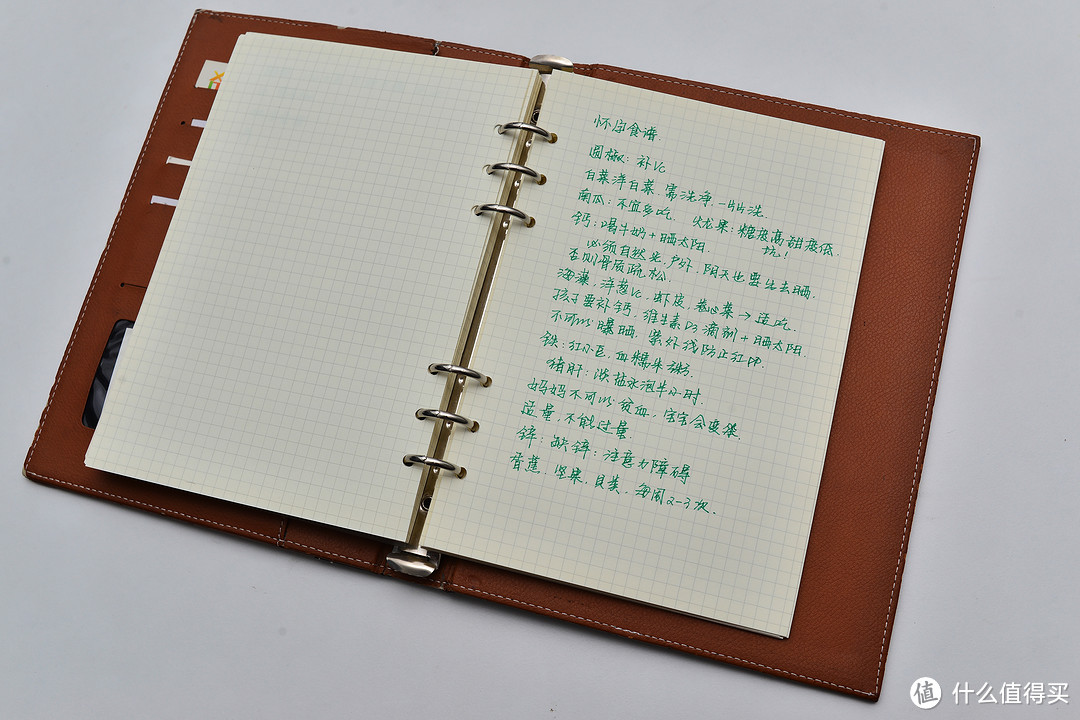 怀孕食谱.
圆椒：补Vc
白菜洋白菜，需洗净，一片片洗.
南瓜：不宜多吃. 火龙果：糖极高甜度低.
钙：喝牛奶+晒太阳. 坑！
必须自然光，户外，阴天也要出去晒，
否则骨质疏松.
海藻，洋葱Vc，虾皮，卷心菜→适吃.
孩子要补钙，维生素D3滴剂+晒太阳.
不可以曝晒，紫外线防止红印.
铁：红小豆，血糯米粥.
猪肝：淡盐水泡半小时.
妈妈不可以贫血，宝宝会变傻.
适量，不能过量.
锌：缺锌：注意力障碍
香蕉，坚果，贝类，每周2-3次.
值 什么值得买